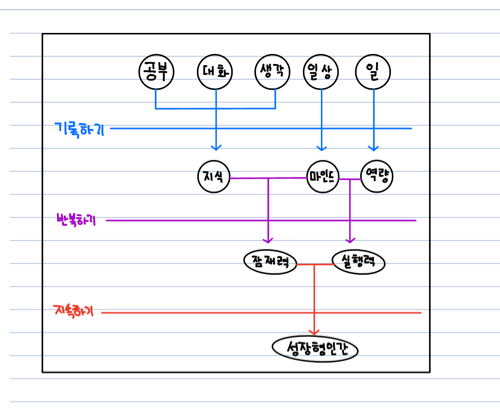 공부 대화 생각 일상 일
기록하기
지식 마인드 역량
반복하기
잠재력 실행력
지속하기
성장형인간